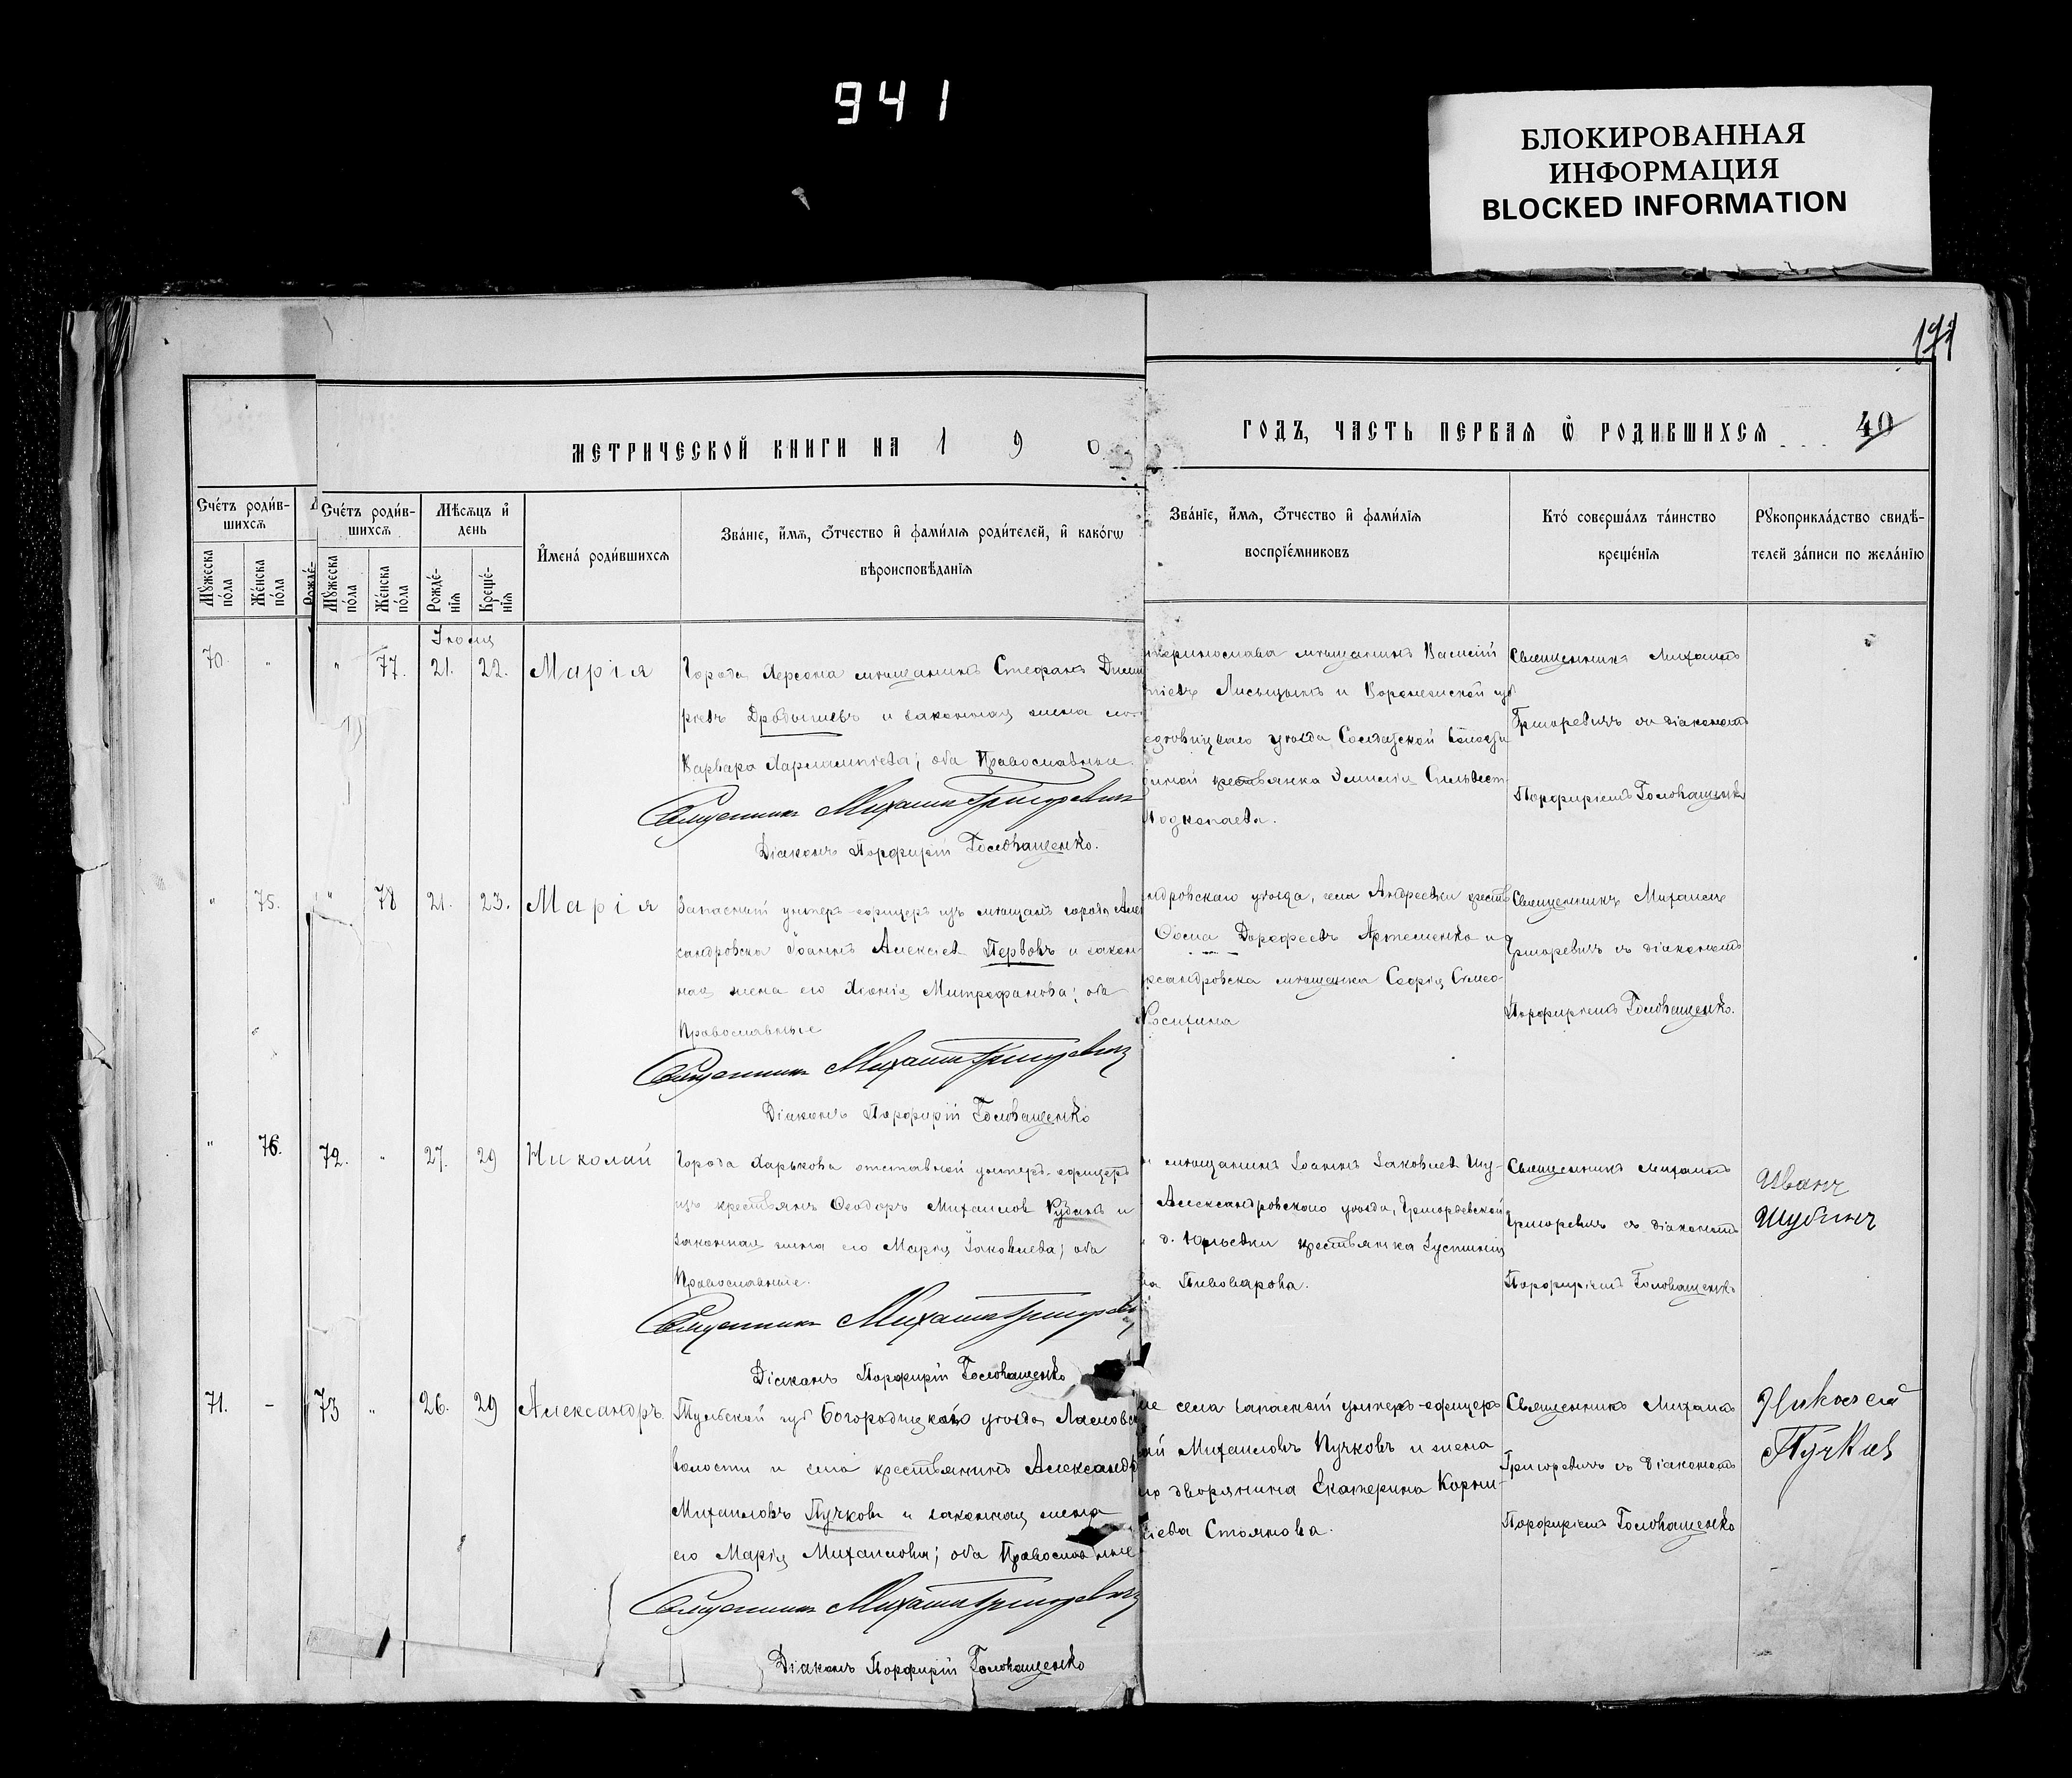 941
БЛОКИРОВАННАЯ
ИНФОРМАЦИЯ
BLOCKED INFORMATION
МЕТРИЧЕСКОЙ КНИГИ НА 190
ГОДЪ, ЧАСТЬ ПЕРВАЯ Ѡ РОДИВШИХСѦ
40
Счéтъ роди́в-
шихсѧ
Мꙋ́жеска пóла
Жéнска пóла
Счéтъ роди́в-
шихсѧ
Мѣ́сѧцъ и҆ день
Мꙋ́жеска пóла
Жéнска пóла
Рождé-нїѧ
Крещé-нїѧ
И҆менá роди́вшихсѧ
Звáнїе, и҆́мѧ, ѻ҆́тчество и҆ фами́лїѧ роди́телей, и҆ какóгѡ
вѣроисповѣ́данїѧ
Звáнїе, и҆́мѧ, ѻ҆́тчество и҆ фами́лїѧ
воспрїе́мниковъ
Ктó совершáлъ тáинство
крещéнїѧ
Рꙋкоприклáдство свидѣ́-
телей зáписи по желáнїю
70. " " 77. 21. 22. Марія
Города Херсона мѣщанинъ Стефанъ Дими
ріевъ Дробышевъ и законная жена его
Варвара Харлампіева; оба Православные.
Священникъ Михаилъ Григоревичъ
Діаконъ Порфирій Головащенко.
теринослава мѣщанинъ Василій
Лисицынъ и Воронежской губ
уѣзда Солдатской волости
крестьянка Эмилія Сильвест-
Подкопаева.
Священникъ Михаилъ
Григоревичъ съ діакономъ
Порфиріемъ Головащенко
" 75. " 78 21. 23. Марія
Запасный унтеръ-офицеръ изъ мѣщанъ города Алек
сандровска Іоаннъ Алексіевъ Первовъ и закон
ная жена его Ксенія Митрофанова; оба
Православные
Священникъ Михаилъ Григоревичъ
Діаконъ Порфирій Головащенко
ндровскаго уѣзда, села Андреевки крест
Ѳома Дороѳеевъ Артеменко и
ександровска мѣщанка Софія Симео-
Косихина
Священникъ Михаилъ
Григоревичъ съ діакономъ
Порфиріемъ Головащенко.
" 76. 72. " 27. 29 Николай
Города Харькова отставной унтеръ-офицеръ
изъ крестьянъ Ѳеодоръ Михаиловъ и
законная жена его Марія Іаковлева; оба
Православные.
Священникъ Михаилъ Григоревичъ
Діаконъ Порфирій Головащенко
мѣщанинъ Іоаннъ Іаковлевъ Шу-
Александровскаго уѣзда, Григорьевской
д. Юрьевки крестьянка Іустинія
Пивоварова.
Священникъ Михаилъ
Григоревичъ съ діакономъ
Порфиріемъ Головащенко
Иванъ
Шубинъ
71. - 73 " 26. 29 Александръ
Тульской губ Богородицкаго уѣзда
волости и села крестьянинъ Александръ
Михаиловъ Пучковъ и законная жена
его Марія Михаилова; оба Православные
Священникъ Михаилъ Григоревичъ
Діаконъ Порфирій Головащенко
села запасный унтеръ-офицеръ
Михаиловъ Пучковъ и жена
дворянина Екатерина Корни-
ліева Стоянова.
Священникъ Михаилъ
Григоревичъ съ Діакономъ
Порфиріемъ Головащенко
Николай
Пучков